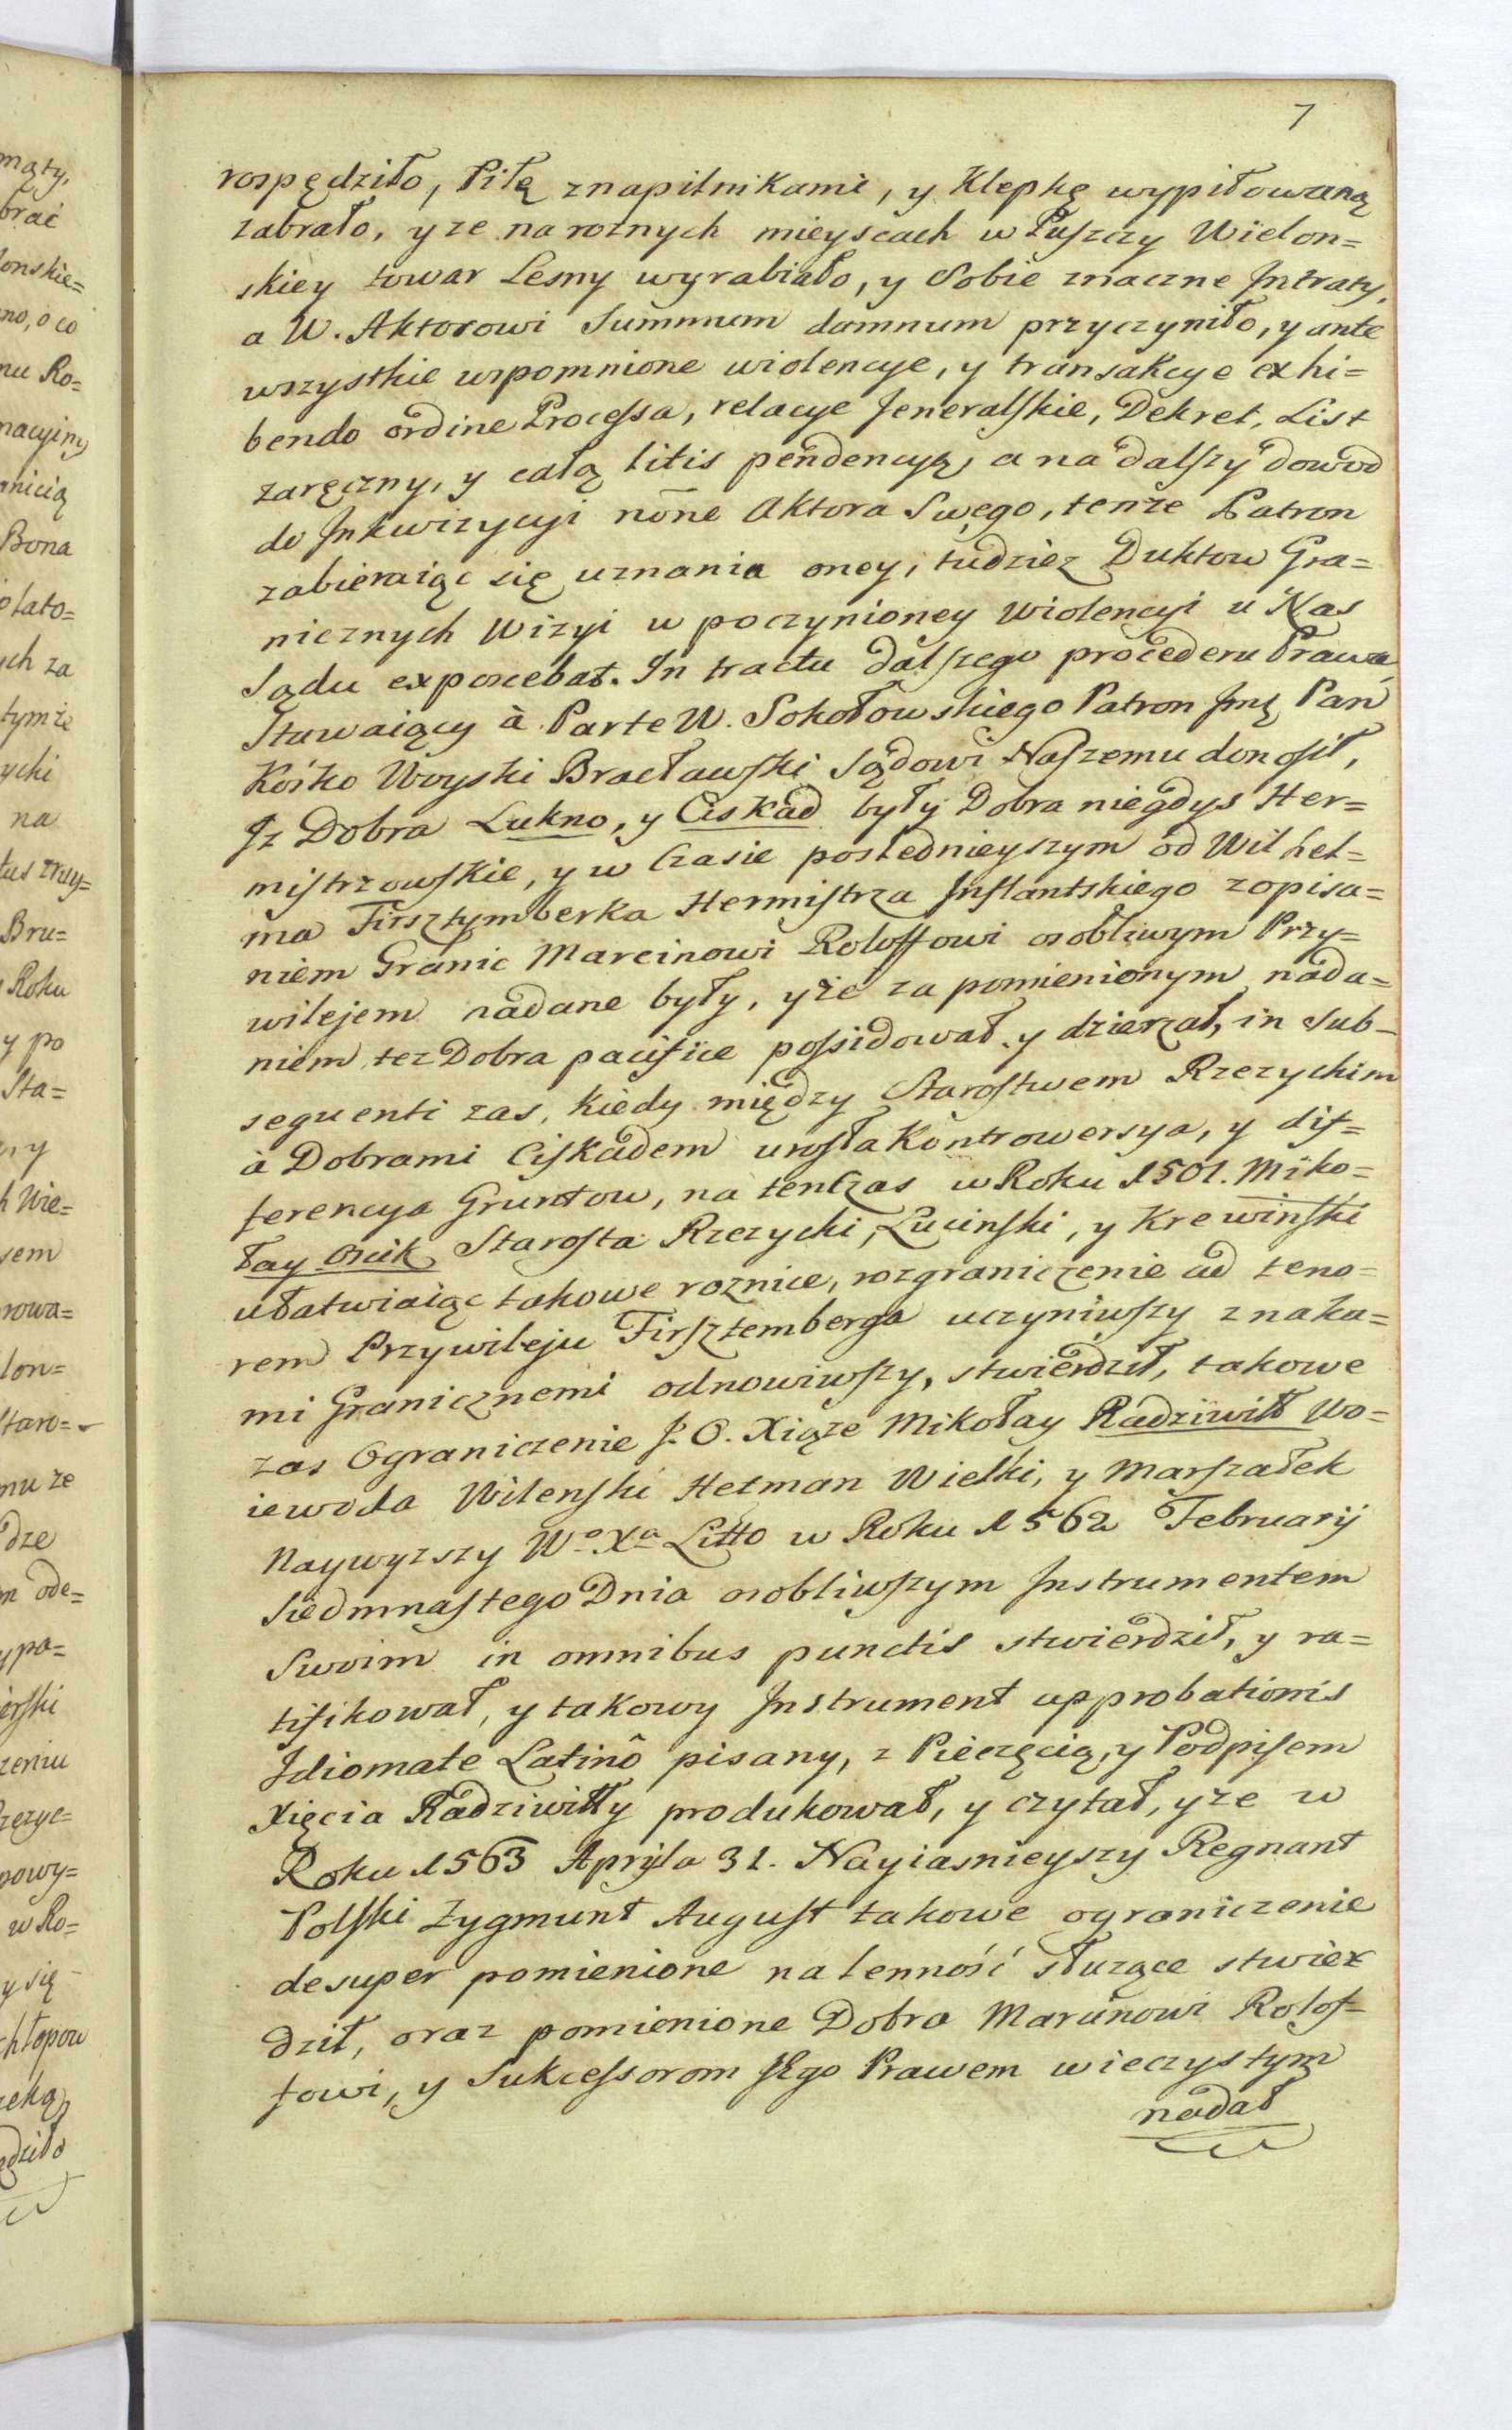 7
rospędziło, Piłą znapilnikami, y Klepkę wypiłowaną
zabrało, yze naroznych mieyscach w Puszczy Wielon=
skiey towar Lesny wyrabiało, y Sobie znaczne Intraty,
a W. Aktorowi Summum damnum przyczyniło, y ante
wszystkie wspomnione wiolencye, y transakcye exhi=
bendo ordine Processa, relacye Jeneralskie, Dekret, List
zaręczny, y całą litis pendencyą, a na dalszy dowod
do Inkwizycyi nõne Aktora Swego, tenze Patron
zabieraiąc się uznania oney, tudziez Duktow Gra=
nicznych Wizyi w poczynioney Wiolencyi u Nas
Sądu exposcebat. In tractu dalszego procederu Prawa
Stawaiący à Parte W. Sokołowskiego Patron Jmę Pan
Kośko Woyski Bracławski Sądowi Naszemu donosił,
Jz Dobra Lukno, y Ciskad były Dobra niegdys Her=
mistrzowskie, y w Czasie poslednieyszym od Wilhel=
ma Firsztymberka Hermistrza Inflantskiego zopisa=
niem Granic Marcinowi Roloffowi osobliwym Przy=
wilejem nadane były, yże za pomienionym nada=
niem tez Dobra pacifice possidował y dzierzał, in sub=
sequenti zas, kiedy między Starostwem Rzezychim
à Dobrami Ciskadem urosła Kontrowersya, y dif=
ferencya Gruntow, na tenczas w Roku 1501. Miko=
łay Oscik Starosta Rzezycki, Lucinski, y Krewinski
ułatwiaiąc takowe roznice, rozgraniczenie ad teno=
rem Przywileju Firsztemberga uczyniwszy znaka=
mi Granicznemi odnowiwszy, stwierdził, takowe
zas Ograniczenie J. O. Xiąze Mikołay Radziwiłł Wo=
iewoda Wilenski Hetman Wielki, y Marszałek
Naywyzszy Wo Xa Litto w Roku 1562 Februarij
Siedmnastego Dnia osobliwszym Instrumentem
Swoim in omnibus punctis stwierdził, y ra=
tifikował, y takowy Instrument approbationis
Idiomate Latinô pisany, z Pieczęcią, y Podpisem
Xięcia Radziwiłły produkował, y czytał, yze w
Roku 1563 Apryla 31. Nayiasnieyszy Regnant
Polski Zygmunt August takowe ograniczenie
desuper pomienione na lenność słuzące stwier
dził, oraz pomienione Dobra Marcinowi Rolof=
fowi, y Sukcessorom JEgo Prawem wieczystym
nadał